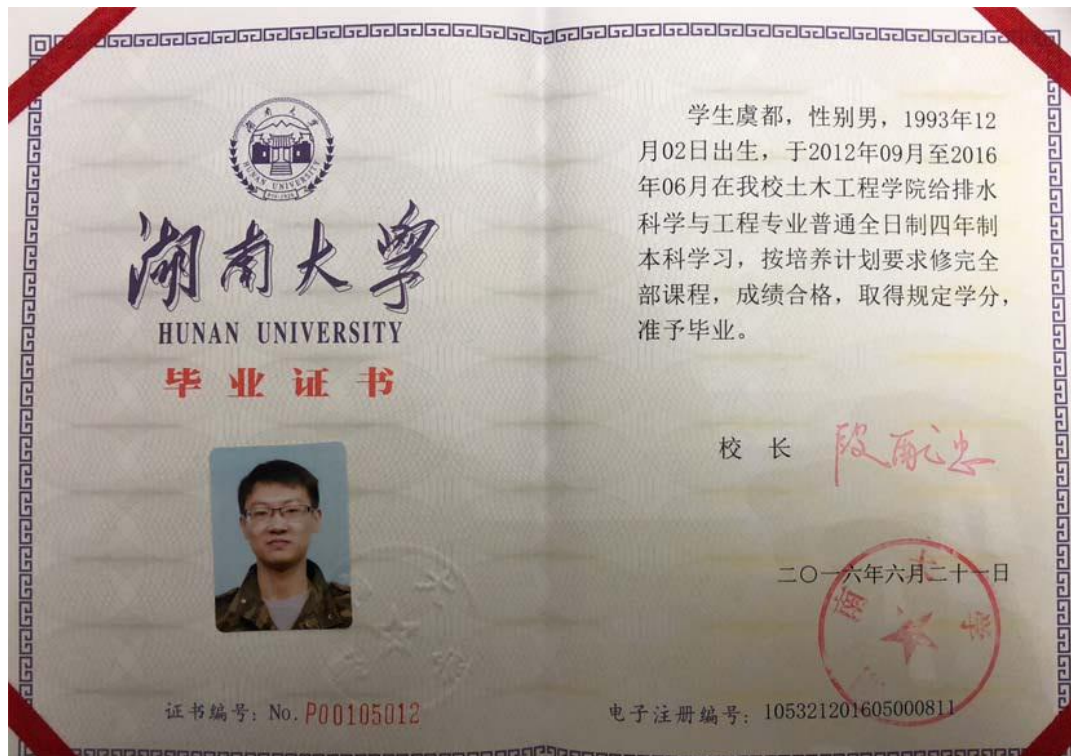 湖南大学
HUNAN UNIVERSITY
湖南大学
HUNAN UNIVERSITY
毕业证书
证书编号：No. P00105012
学生虞都，性别男，1993年12
月02日出生，于2012年09月至2016
年06月在我校土木工程学院给排水
科学与工程专业普通全日制四年制
本科学习，按培养计划要求修完全
部课程，成绩合格，取得规定学分，
准予毕业。
校 长 段献忠
二〇一六年六月二十一日
南大学
电子注册编号：105321201605000811